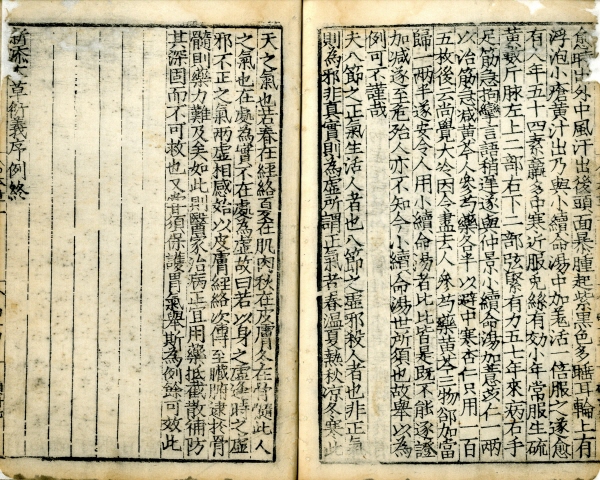 愈時中外中風汗出後頭面暴腫起紫黑色多睡耳輪上有
浮泡小瘡黃汁出乃與小續命湯中加羌活一倍服之遂愈
有人年五十四素羸多中寒近服兔絲有効小年常服生硫
黃數斤脉左上二部右下二部弦緊有力五七年來病右手
足筋急拘攣言語稍遲遂與仲景小續命湯加薏苡仁一兩
以治筋急減黃芩人參芍藥各半以避中寒杏仁只用一百
五枚後云尚覺大冷因令盡去人參芍藥黃芩三物卻加當
歸一兩半遂安今人用小續命湯者比比皆是旣不能逐證
加減遂至危殆人亦不知今小續命湯世所須也故舉以為
例可不謹哉
夫八節之正氣生活人者也八節之虛邪殺人者也非正氣
則為邪非真實則為虛所謂正氣者春溫夏熱秋涼冬寒此
天之氣也若春在經絡夏在肌肉秋在皮膚冬在骨髓此人
之氣也在處為實不在處為虛故曰若以身之虛逢時之虛
邪不正之氣兩虛相感始以皮膚經絡次傳至臟腑逮於骨
髓則藥力難及矣如此則醫家治病正宜用藥抵截散補防
其深固而不可救也又嘗須保護胃氣舉斯為例餘可效此
草衍義序例終